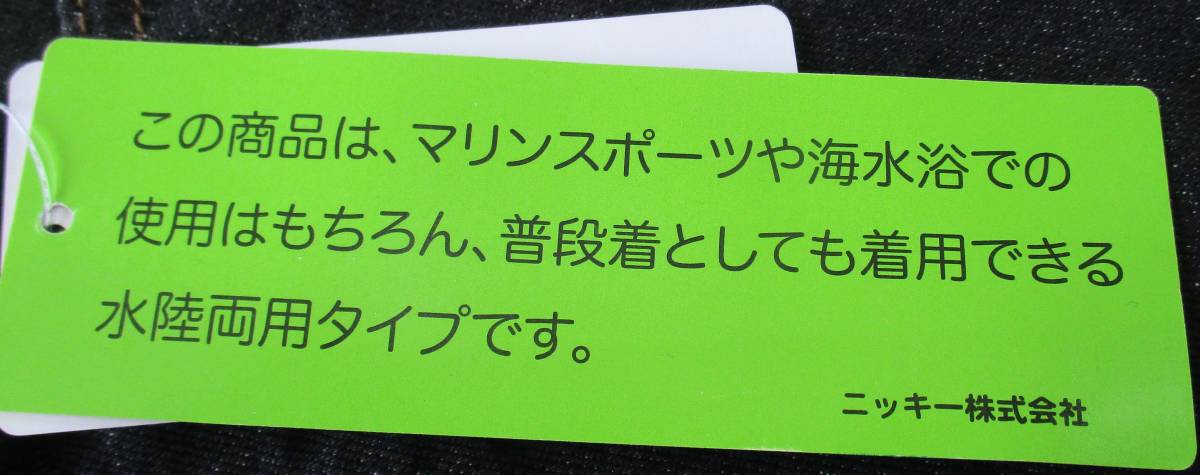 この商品は、マリンスポーツや海水浴での
使用はもちろん、普段着としても着用できる
水陸両用タイプです。
ニッキー株式会社